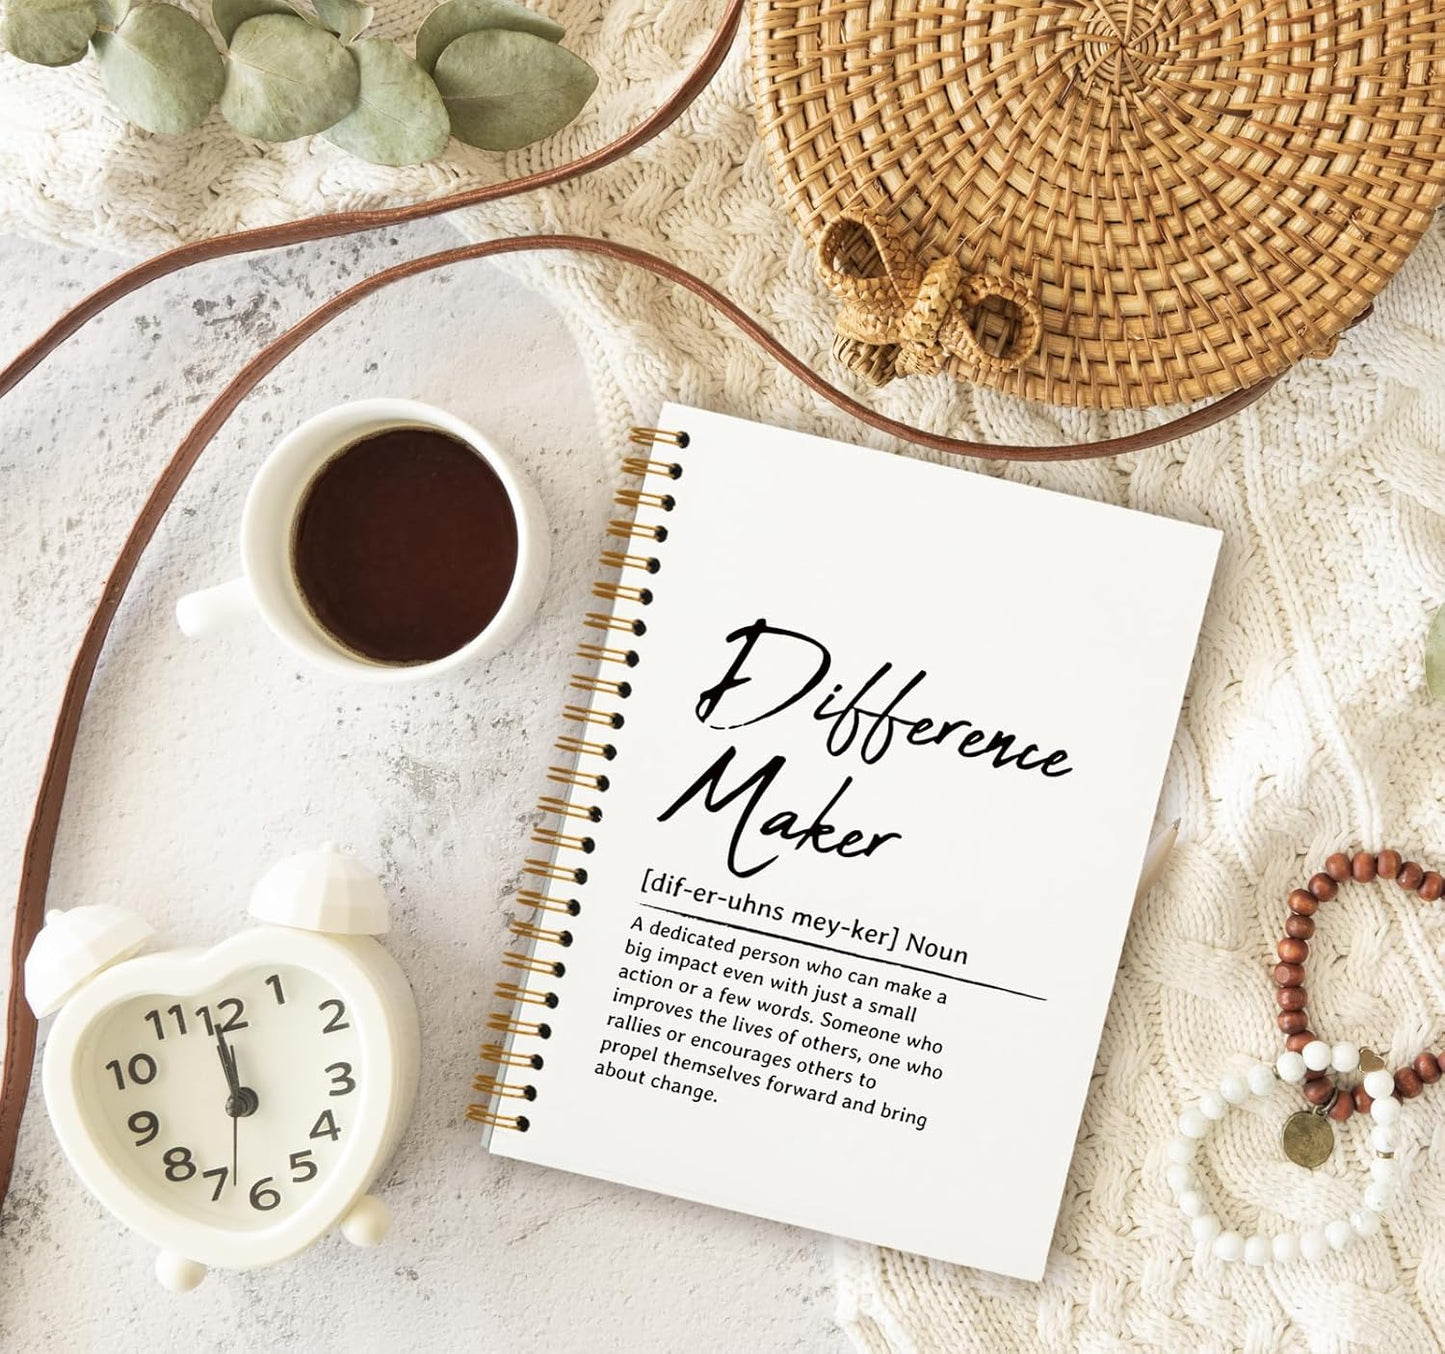 Difference
Maker
[dif-er-uhns mey-ker] Noun
A dedicated person who can make a
big impact even with just a small
action or a few words. Someone who
improves the lives of others, one who
rallies or encourages others to
propel themselves forward and bring
about change.
11 12 1
10 2
9 3
8 4
7 6 5